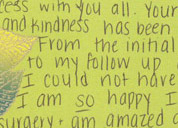 cess with you all. Your
and kindness has been
From the initial
to my follow up
I could not have
I am so happy I
surgery & am amazed a